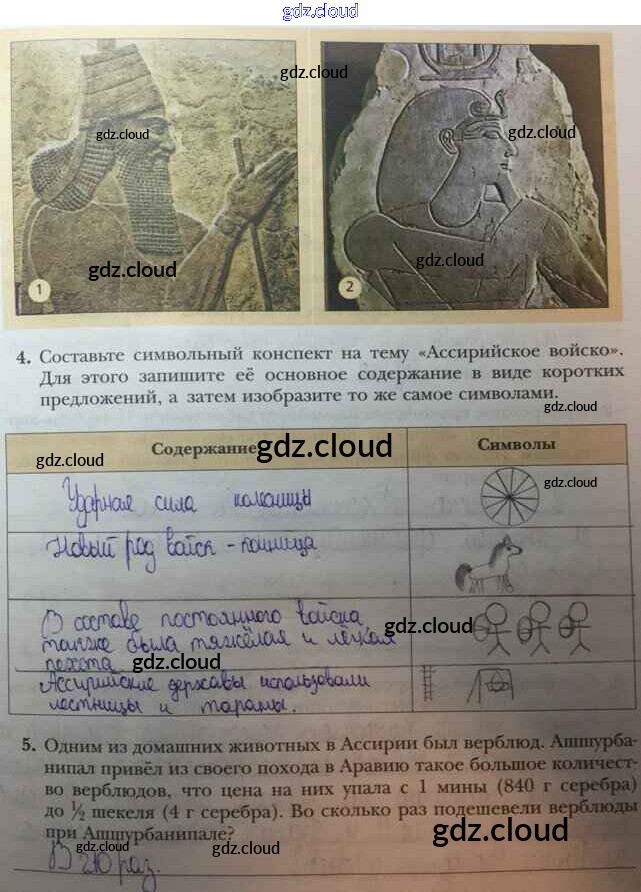 gdz.cloud
gdz.cloud
gdz.cloud
gdz.cloud
gdz.cloud
gdz.cloud
1
2
4. Составьте символьный конспект на тему «Ассирийское войско».
Для этого запишите её основное содержание в виде коротких
предложений, а затем изобразите то же самое символами.
gdz.cloud
Содержание
gdz.cloud
Символы
gdz.cloud
gdz.cloud
Ударная сила колесницы
Новый род войск - конница
В составе постоянного войска
также была тяжёлая и лёгкая
gdz.cloud
пехота
gdz.cloud
Ассирийские державы использовали
лестницы и тараны.
5. Одним из домашних животных в Ассирии был верблюд. Ашшурба-
нипал привёл из своего похода в Аравию такое большое количест-
во верблюдов, что цена на них упала с 1 мины (840 г серебра)
до ½ шекеля (4 г серебра). Во сколько раз подешевели верблюды
при Ашшурбанипале?
gdz.cloud
В 210 раз.
gdz.cloud
gdz.cloud